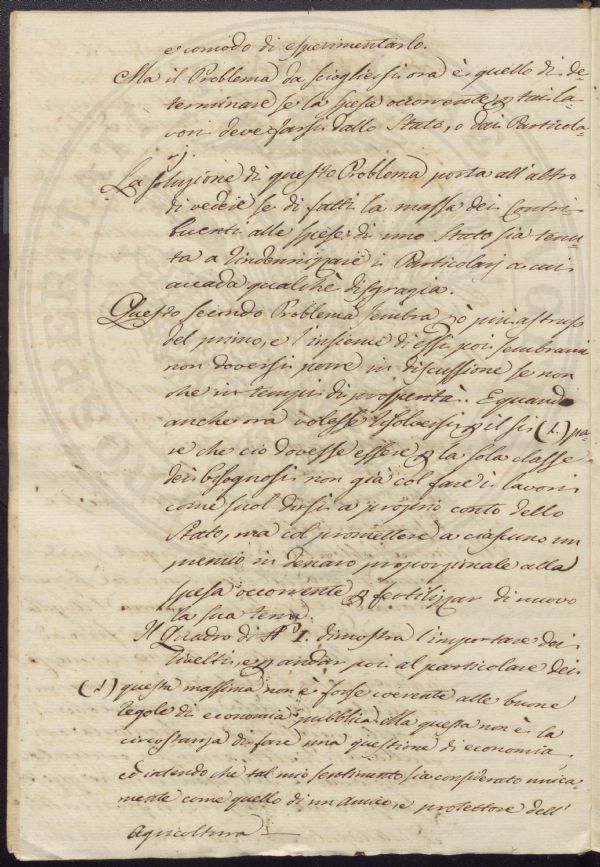 e comodo di esperimentarlo.
Ma il Problema da sciogliersi ora è quello di de-
terminare se la spesa occorrente p tai la-
vori deve farsi dallo Stato, o dai Particola-
ri.
La soluzione di questo Problema porta all'altro
di vedere se di fatti la massa dei Contri-
buenti alle spese di uno Stato sia tenu-
ta a indennizzare i Particolarj a cui
accada qualche disgrazia.
Questo secondo Problema sembra più astruso
del primo, e l'insieme di essi poi sembrami
non doversi porre in discussione se non
che in tempi di prosperità. E quando
anche ora volesse risolversi p il si (1.) pa-
re che ciò dovesse essere p la sola classe
dei bisognosi non già col fare i lavori
come suol dirsi a proprio conto dello
Stato, ma col promettere a ciascuno un
premio in denaro proporzionale alla
spesa occorrente p fertilizzar di nuovo
la sua terra.
Il Quadro di N.° 1. dimostra l'importare dei
livelli, e p andar poi al particolare dei
(1) questa massima non è forse coerente alle buone
regole di economia pubblica. Ma questa non è la
circostanza di fare una questione di economia
ed intendo che tal mio sentimento sia considerato unica
mente come quello di un Amico, e protettore dell'
Agricoltura
PROSPERITATI